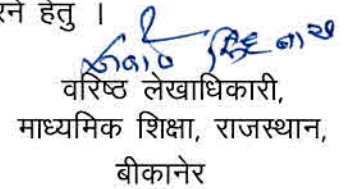 रने हेतु ।
वरिष्ठ लेखाधिकारी,
माध्यमिक शिक्षा, राजस्थान,
बीकानेर